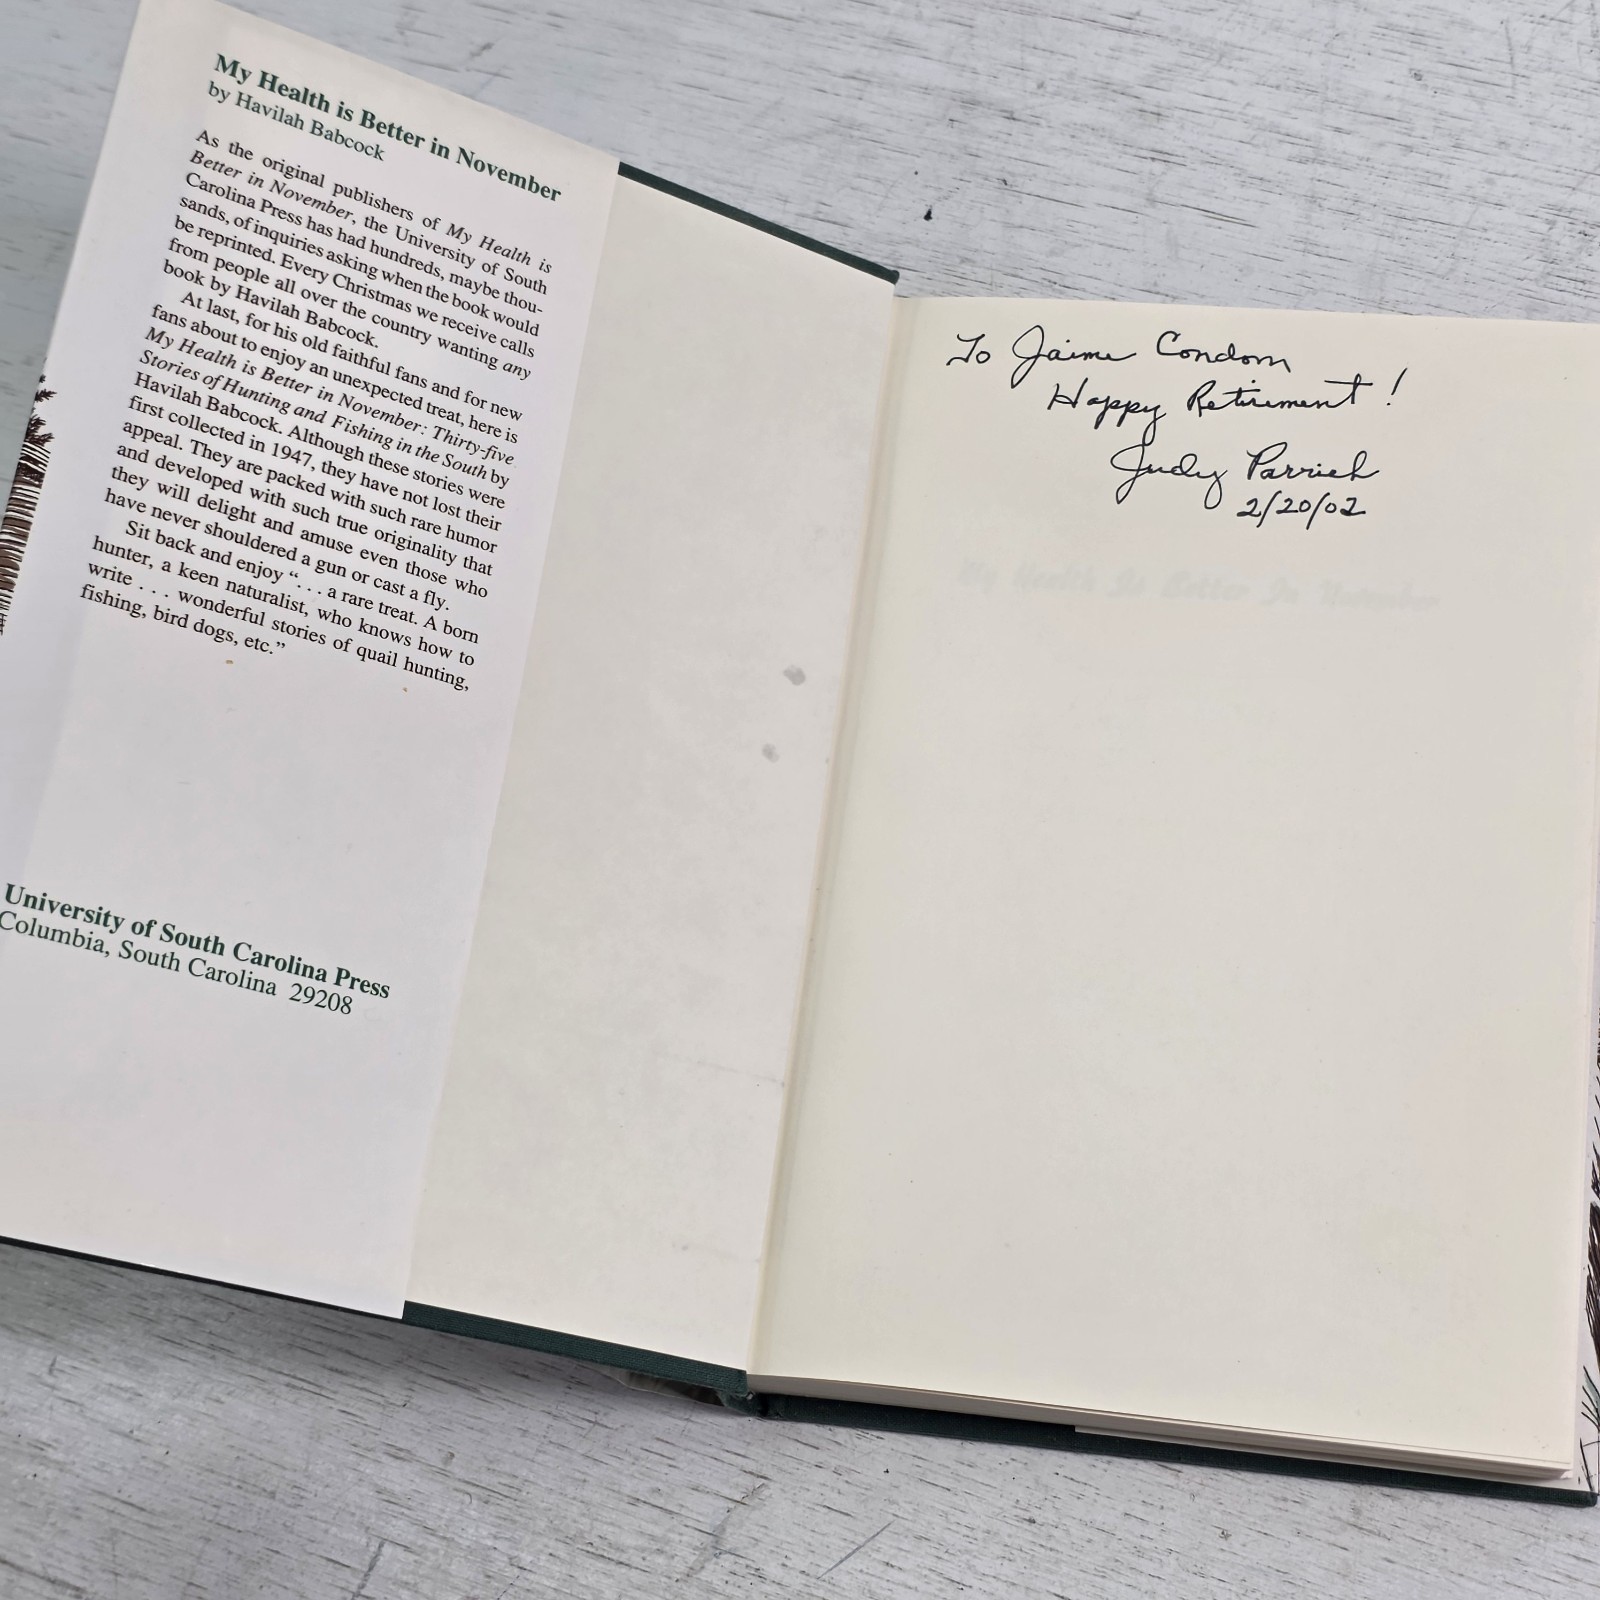 My Health is Better in November
by Havilah Babcock
As the original publishers of My Health is
Better in November, the University of South
Carolina Press has had hundreds, maybe thou-
sands, of inquiries asking when the book would
be reprinted. Every Christmas we receive calls
from people all over the country wanting any
book by Havilah Babcock.
At last, for his old faithful fans and for new
fans about to enjoy an unexpected treat, here is
My Health is Better in November: Thirty-five
Stories of Hunting and Fishing in the South by
Havilah Babcock. Although these stories were
first collected in 1947, they have not lost their
appeal. They are packed with such rare humor
and developed with such true originality that
they will delight and amuse even those who
have never shouldered a gun or cast a fly.
Sit back and enjoy “. . . a rare treat. A born
hunter, a keen naturalist, who knows how to
write . . . wonderful stories of quail hunting,
fishing, bird dogs, etc.”
University of South Carolina Press
Columbia, South Carolina 29208
To Jaime Condom
Happy Retirement!
Judy Parrish
2/20/02
My Health Is Better In November